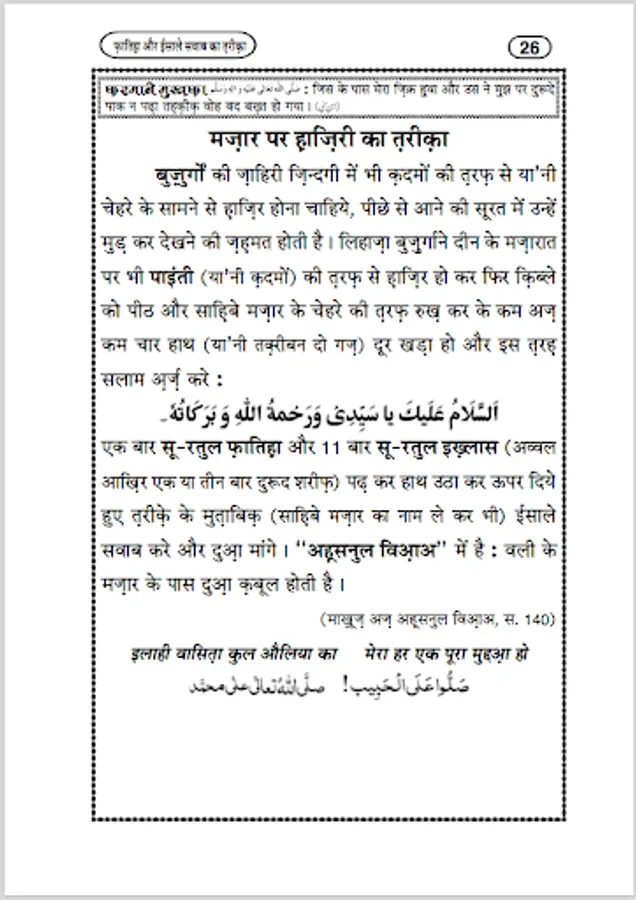 फ़ातिह़ा और ईसाले सवाब का त़रीक़ा
26
फ़रमाने मुस्त़फ़ा صلى الله تعالى عليه واله وسلم : जिस के पास मेरा ज़िक्र हुवा और उस ने मुझ पर दुरूदे
पाक न पढ़ा तह़क़ीक़ वोह बद बख़्त हो गया ।
मज़ार पर ह़ाज़िरी का त़रीक़ा
बुज़ुर्गों की ज़ाहिरी ज़िन्दगी में भी क़दमों की त़रफ़ से या'नी
चेहरे के सामने से ह़ाज़िर होना चाहिये, पीछे से आने की सूरत में उन्हें
मुड़ कर देखने की ज़ह़मत होती है । लिहाज़ा बुज़ुर्गाने दीन के मज़ारात
पर भी पाइंती (या'नी क़दमों) की त़रफ़ से ह़ाज़िर हो कर फिर क़िब्ले
को पीठ और साहिबे मज़ार के चेहरे की त़रफ़ रुख़ कर के कम अज़
कम चार हाथ (या'नी तक़्रीबन दो गज़) दूर खड़ा हो और इस त़रह़
सलाम अ़र्ज़ करे :
اَلسَّلَامُ عَلَيْكَ يا سَيِّدِىْ وَرَحْمَةُ اللهِ وَ بَرَكَاتُهٗ۔
एक बार सू-रतुल फ़ातिह़ा और 11 बार सू-रतुल इख़्लास (अव्वल
आख़िर एक या तीन बार दुरूद शरीफ़) पढ़ कर हाथ उठा कर ऊपर दिये
हुए त़रीक़े के मुत़ाबिक़ (साहिबे मज़ार का नाम ले कर भी) ईसाले
सवाब करे और दुआ़ मांगे । “अह़्सनुल विआ़अ” में है : वली के
मज़ार के पास दुआ़ क़बूल होती है ।
(माख़ूज़ अज़ अह़्सनुल विआ़अ, स. 140)
इलाही वासित़ा कुल औलिया का मेरा हर एक पूरा मुद्दआ़ हो
صَلُّوا عَلَى الْحَبِيب! صلَّى اللهُ تعالٰى على محمَّد